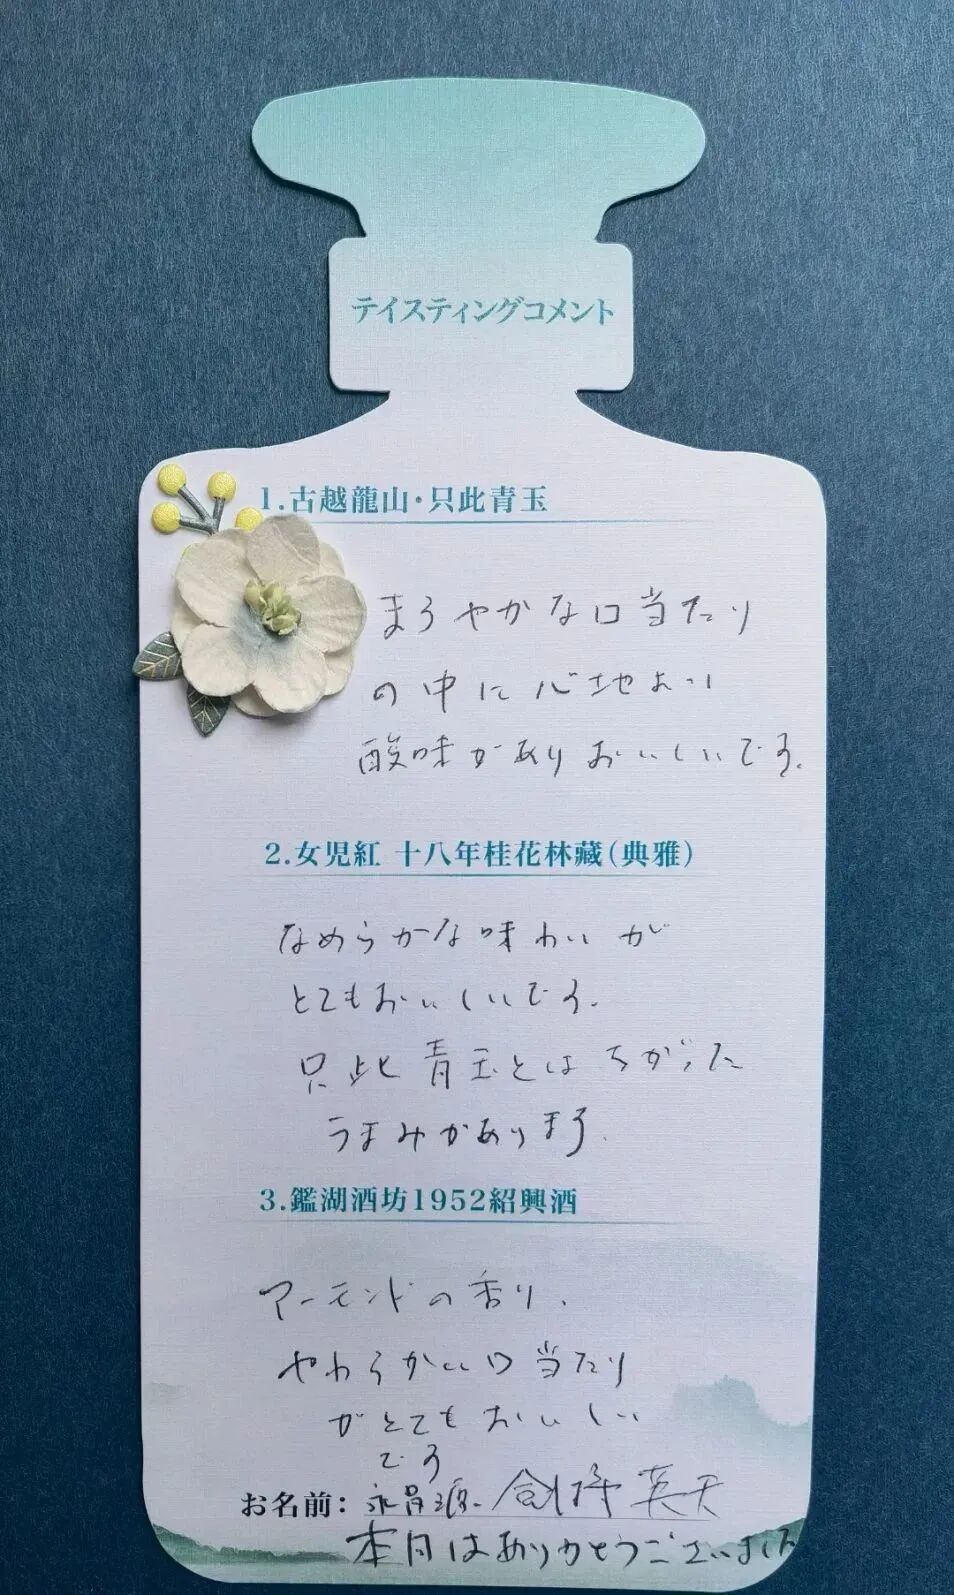 テイスティングコメント
1.古越龍山・只此青玉
まろやかな口当たり
の中に心地よい
酸味がありおいしいです。
2.女児紅 十八年桂花林藏(典雅)
なめらかな味わいが
とてもおいしいです。
只此青玉とはちがった
うまみがあります。
3.鑑湖酒坊1952紹興酒
アーモンドの香り、
やわらかい口当たり
がとてもおいしい
です
お名前: 永昌源
本日はありがとうございました